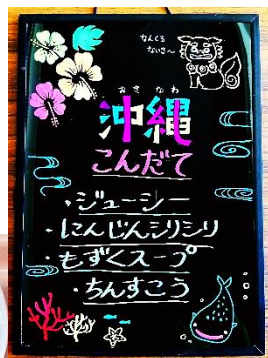 なんくる
ないさ〜
おきなわ
沖縄
こんだて
・ジューシー
・にんじんシリシリ
・もずくスープ
・ちんすこう